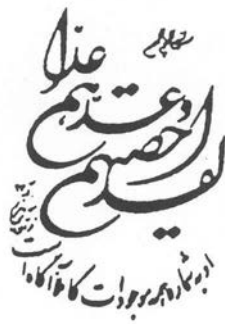 لقد احصيهم
وعدهم
عدا
او به شماره همه موجودات کاملا آگاه است